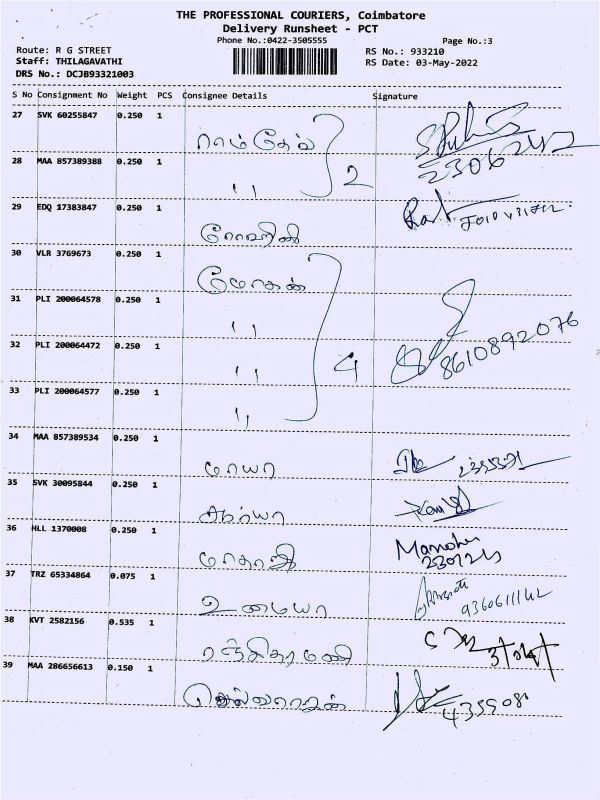 THE PROFESSIONAL COURIERS, Coimbatore
Delivery Runsheet - PCT
Phone No.:0422-3505555
Page No.:3
Route: R G STREET
RS No.: 933210
Staff: THILAGAVATHI
RS Date: 03-May-2022
DRS No.: DCJB93321003
S No Consignment No Weight PCS Consignee Details Signature
27 SVK 60255847 0.250 1
ராம்தேவ்
28 MAA 857389388 0.250 1
,, 2
29 EDQ 17383847 0.250 1
ரோஹிணி
30 VLR 3769673 0.250 1
மோகன்
31 PLI 200064578 0.250 1
,,
32 PLI 200064472 0.250 1
,, 4 8610892076
33 PLI 200064577 0.250 1
,,
34 MAA 857389534 0.250 1
மாயா
35 SVK 30095844 0.250 1
36 HLL 1370008 0.250 1
Manohar
37 TRZ 65334864 0.075 1
உமையா 9360611142
38 KVT 2582156 0.535 1
ரஞ்சிதாமணி
39 MAA 286656613 0.150 1
செல்வராஜன் 435908